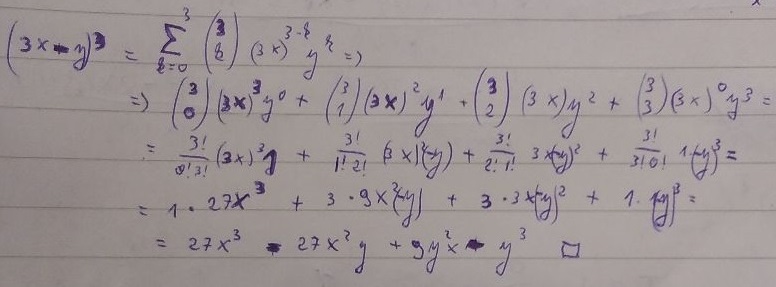 (3x-y)³ = ∑_{k=0}^{3} (3 k) (3x)^{3-k} y^k =>
=> (3 0) (3x)³y⁰ + (3 1)(3x)²y¹ + (3 2) (3x)y² + (3 3)(3x)⁰y³ =
= 3!/0!3! (3x)³1 + 3!/1!2! (3x)²(-y) + 3!/2!1! 3x(-y)² + 3!/3!0! 1(-y)³ =
= 1·27x³ + 3·9x²(-y) + 3·3x(-y)² + 1·(-y)³ =
= 27x³ - 27x²y + 9y²x - y³ □